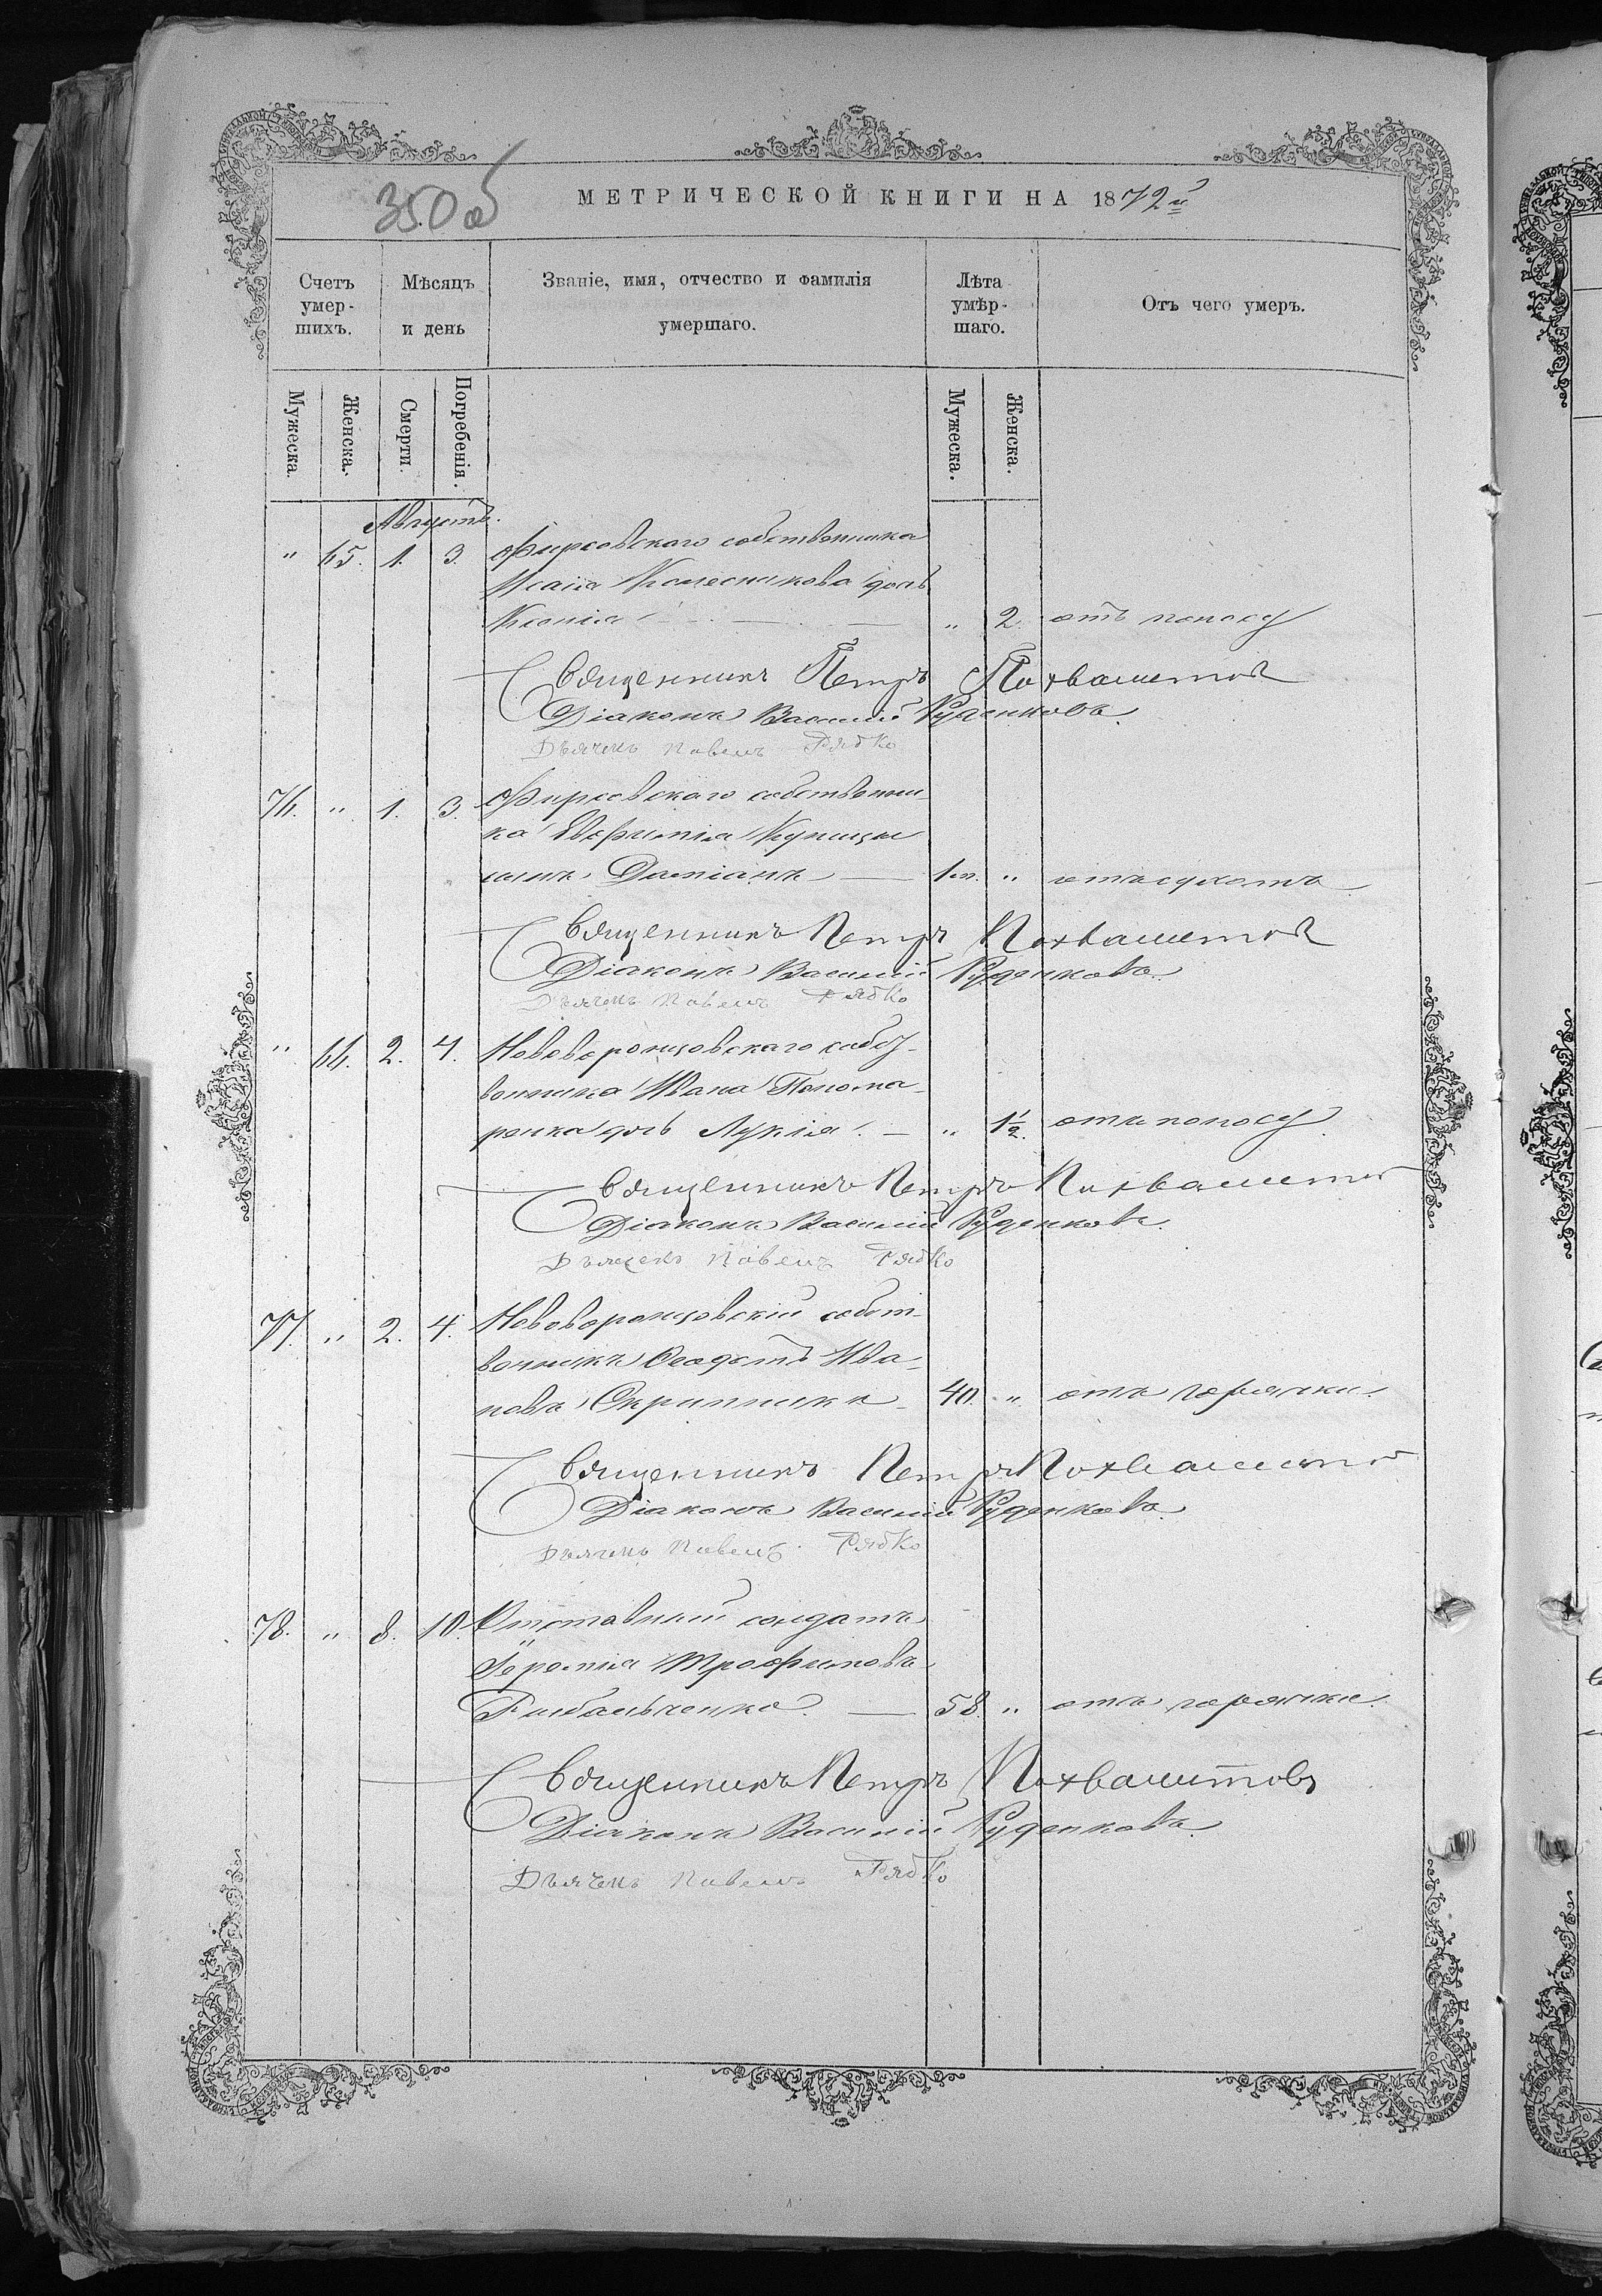 350об
МЕТРИЧЕСКОЙ КНИГИ НА 1872й
Счетъ умер-шихъ.
Мѣсяцъ и день
Званіе, имя, отчество и фамилія умершаго.
Лѣта умѣр-шаго.
Отъ чего умеръ.
Мужеска.
Женска.
Смерти.
Погребенія.
Мужеска.
Женска.
Августъ.
" 65. 1. 3. Фирсовскаго собственника
Исаіа Колесникова дочь
Ксенія — " 2. отъ поносу
Священникъ Петръ Похвалитой
Діаконъ Василій Руденковъ.
Дьячекъ Павелъ Рябко
76. " 1. 3. Фирсовскаго собственни-
ка Евфимія Куницы
сынъ Даміанъ — 1м. "
Священникъ Петръ Похвалитой
Діаконъ Василій Руденковъ.
Дьячекъ Павелъ Рябко
" 66. 2. 4. Нововоронцовскаго собст-
венника Ивана Понома-
ренка дочь Лукія. — " 1½. отъ поносу.
Священникъ Петръ Похвалитой
Діаконъ Василій Руденковъ.
Дьячекъ Павелъ Рябко
77. " 2. 4. Нововоронцовскій собст-
венникъ Ѳеодотъ Ива-
новъ Скрипникъ 40. " отъ горячки.
Священникъ Петръ Похвалитой
Діаконъ Василій Руденковъ.
Дьячекъ Павелъ Рябко
78. " 8. 10. Отставный солдатъ
Іеремія Трофимовъ
Рибальченко. — 58. " отъ горячки.
Священникъ Петръ Похвалитовъ
Діаконъ Василій Руденковъ.
Дьячекъ Павелъ Рябко